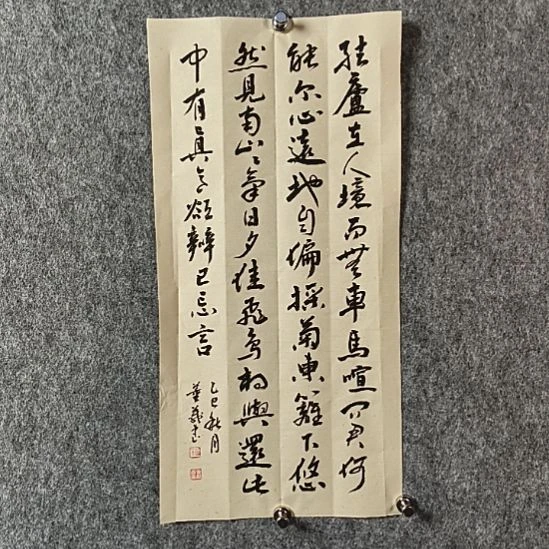 結廬在人境而無車馬喧问君何
能尔心遠地自偏採菊東籬下悠
然見南山々氣日夕佳飛鳥相與還此
中有眞意欲辨已忘言
乙巳秋月